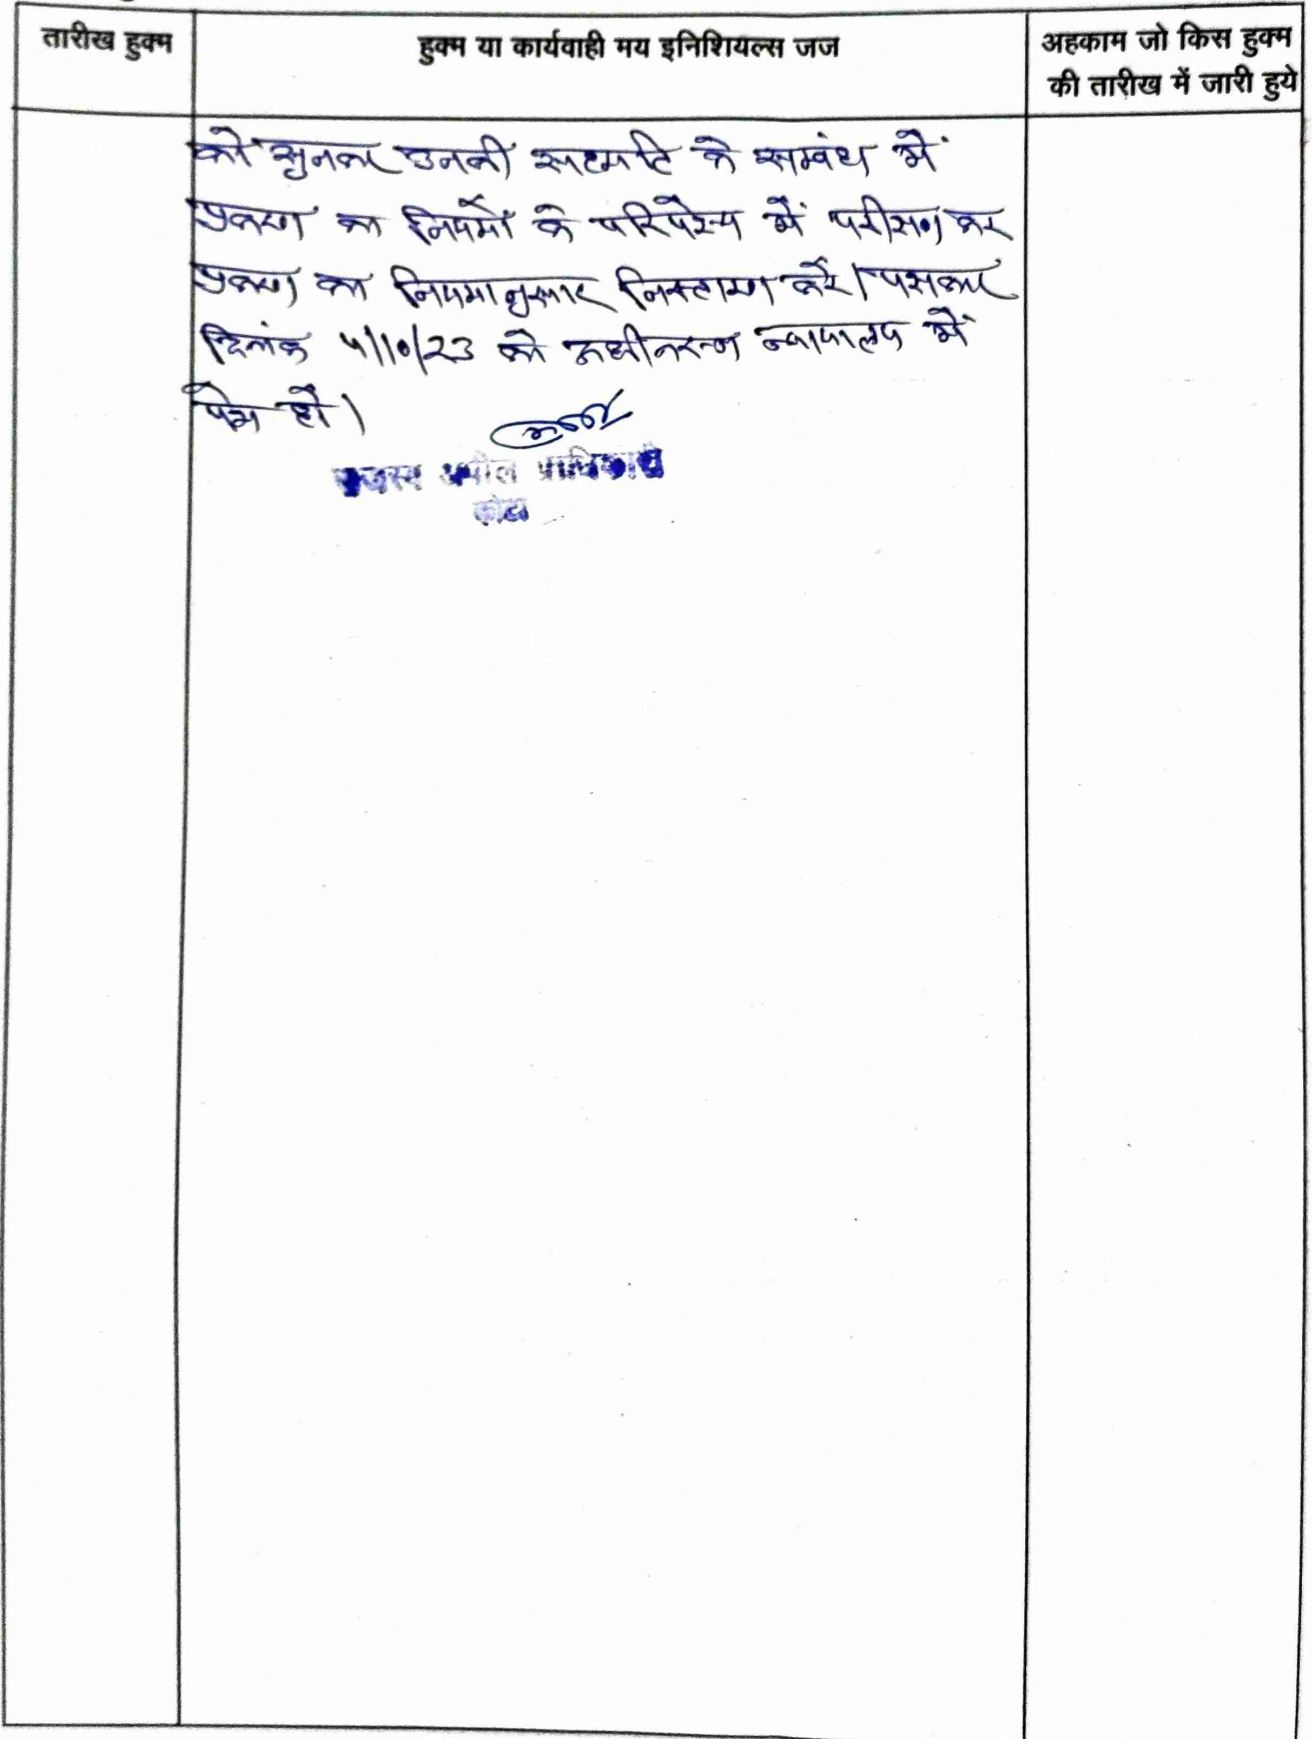 तारीख हुक्म
हुक्म या कार्यवाही मय इनिशियल्स जज
अहकाम जो किस हुक्म
की तारीख में जारी हुये
को सुनकर उनकी सहमति के सम्बंध में
प्रकरण का नियमों के परिपेक्ष्य में परीक्षण कर
प्रकरण का नियमानुसार निस्तारण करें। पक्षकार
दिनांक 5/10/23 को अधीनस्थ न्यायालय में
पेश हों।
राजस्व अपील प्राधिकारी
कोटा